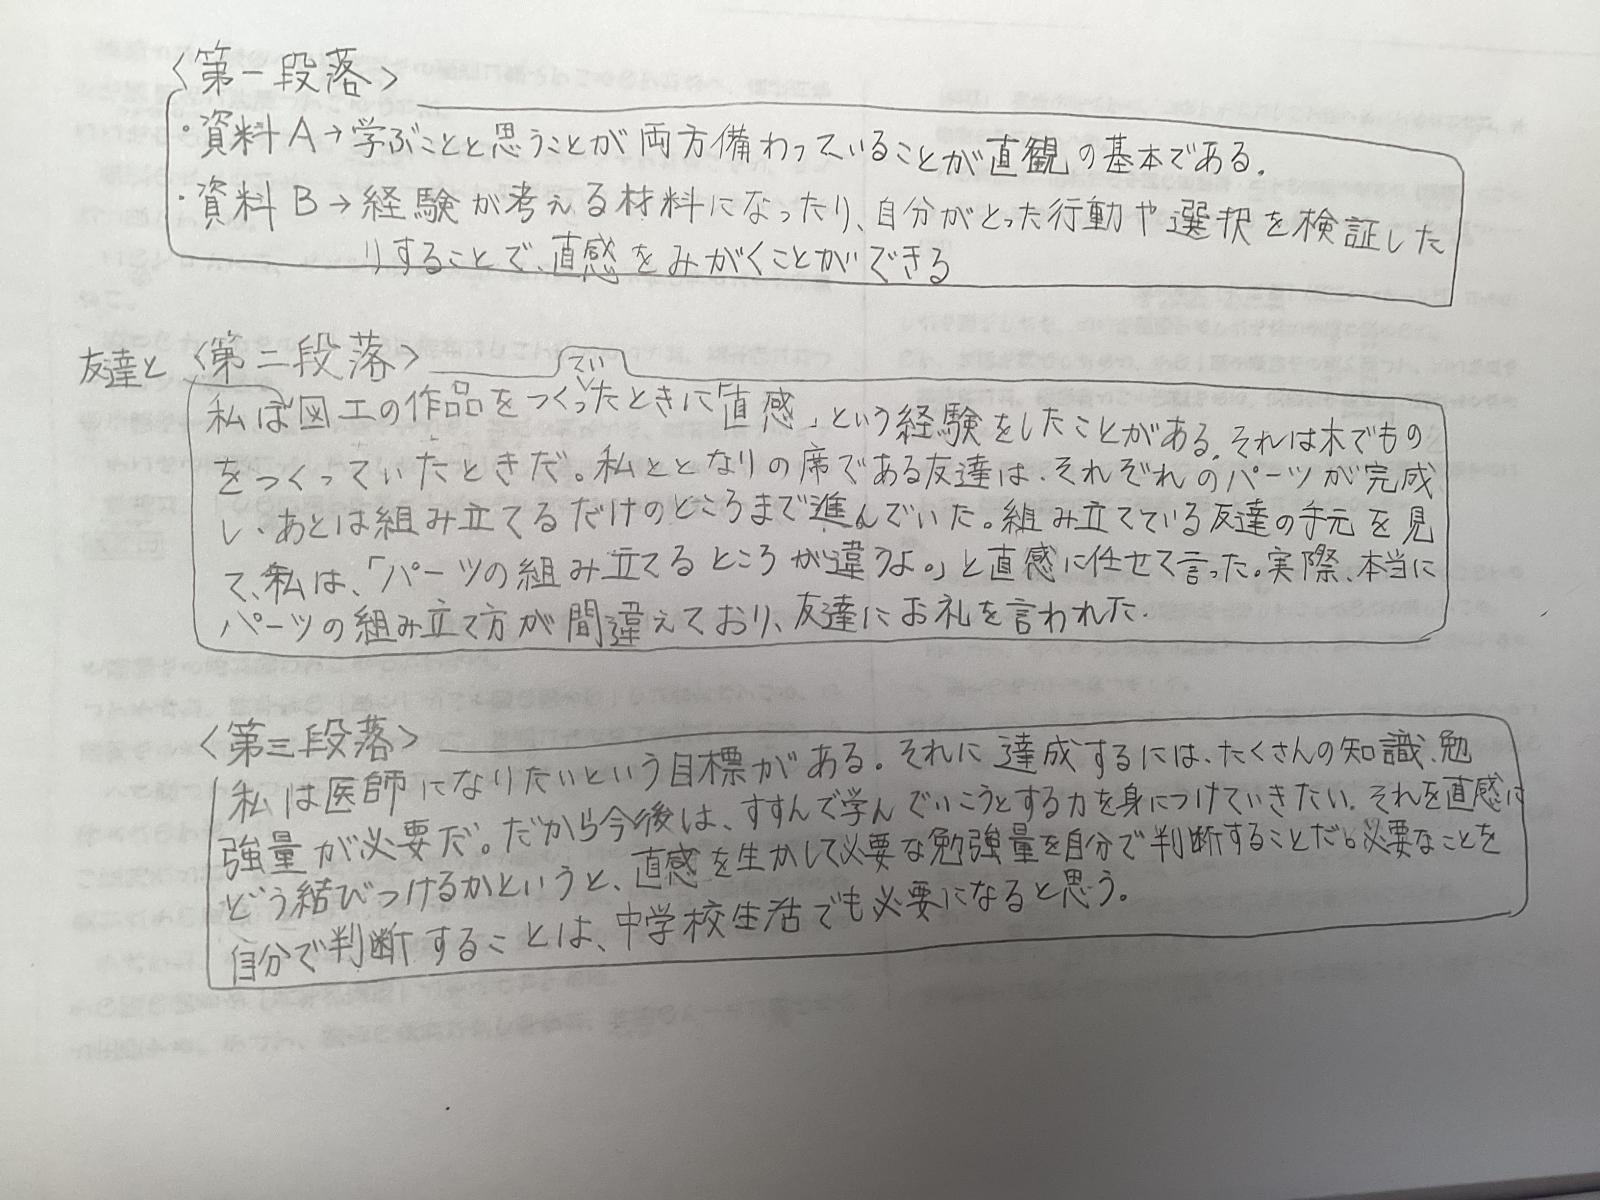 〈第一段落〉
・資料A→学ぶことと思うことが両方備わっていることが直観の基本である.
・資料B→経験が考える材料になったり、自分がとった行動や選択を検証した
りすることで、直感をみがくことができる
友達と〈第二段落〉
てい
私は図工の作品をつくったときに「直感」という経験をしたことがある.それは木でもの
をつくっていたときだ。私ととなりの席である友達は、それぞれのパーツが完成
し、あとは組み立てるだけのところまで進んでいた。組み立てている友達の手元を見
て、私は、「パーツの組み立てるところが違うよ。」と直感に任せて言った。実際、本当に
パーツの組み立て方が間違えており、友達にお礼を言われた.
〈第三段落〉
私は医師になりたいという目標がある。それに達成するには、たくさんの知識、勉
強量が必要だ。だから今後は、すすんで学んでいこうとする力を身につけていきたい.それを直感に
どう結びつけるかというと、直感を生かして必要な勉強量を自分で判断することだ。必要なことを
自分で判断することは、中学校生活でも必要になると思う。